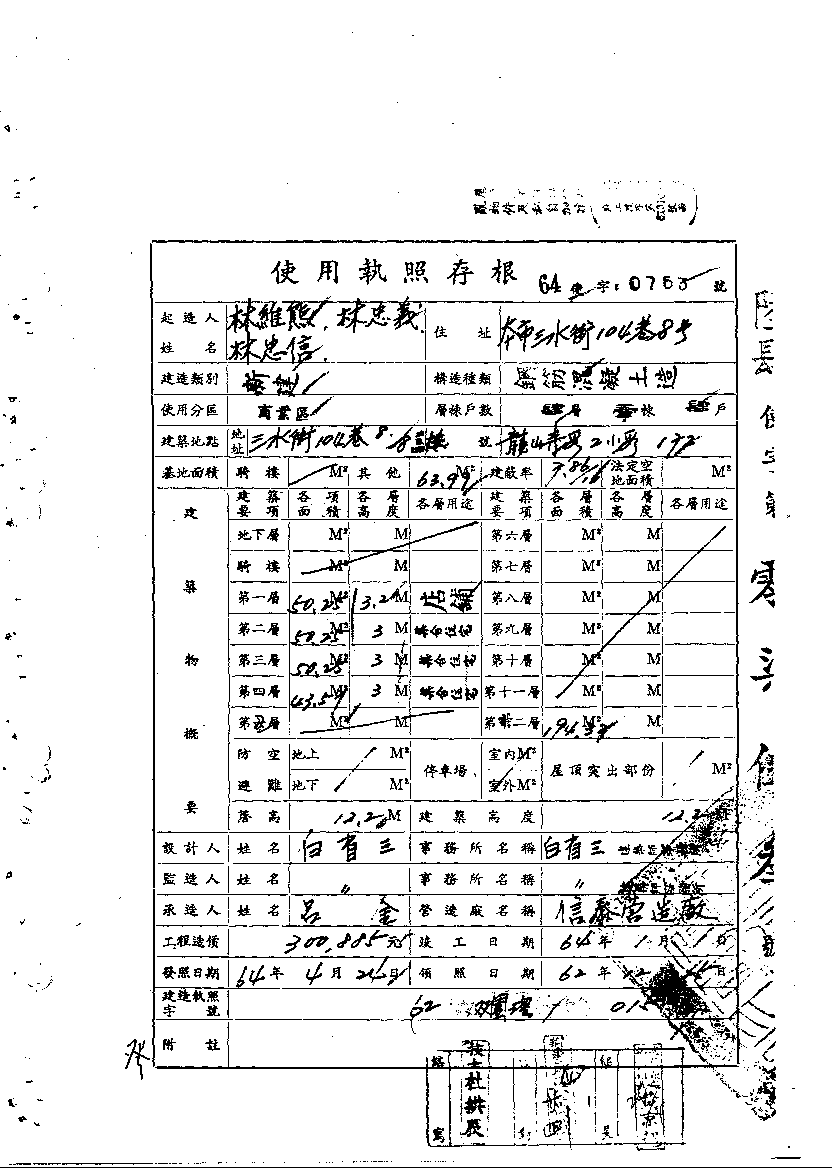 使用執照存根 64使字:0755號
起造人姓名 林維熊、林忠義、林忠信 住址 本市三水街104巷8号
建造類別 新建 構造種類 鋼筋混凝土造
使用分區 商業區 層棟戶數 層 棟 戶
建築地點 地址 三水街104巷8 號 龍山 2小段 172
基地面積 騎樓 M² 其他 63.99 M² 建蔽率 法定空地面積 M²
建築物概要 建築要項 各項面積 各層高度 各層用途 建築要項 各層面積 各層高度 各層用途
地下層 M² M 第六層 M² M
騎樓 M² M 第七層 M² M
第一層 50.25 M² 3.2 M 店舖 第八層 M² M
第二層 50.25 M² 3 M 集合住宅 第九層 M² M
第三層 50.25 M² 3 M 集合住宅 第十層 M² M
第四層 43.59 M² 3 M 集合住宅 第十一層 M² M
第五層 M² M 第十二層 194.34 M² M
防空避難 地上 M² 停車場 室內M² 屋頂突出部份 M²
地下 M² 室外M²
簷高 12.2 M 建築高度 12.2 M
設計人 姓名 白有三 事務所名稱 白有三
監造人 姓名 〃 事務所名稱 〃
承造人 姓名 呂金 營造廠名稱 信泰營造廠
工程造價 300,885元 竣工日期 64年1月1日
發照日期 64年4月24日 領照日期 62年12月 日
建造執照字號 62
附註